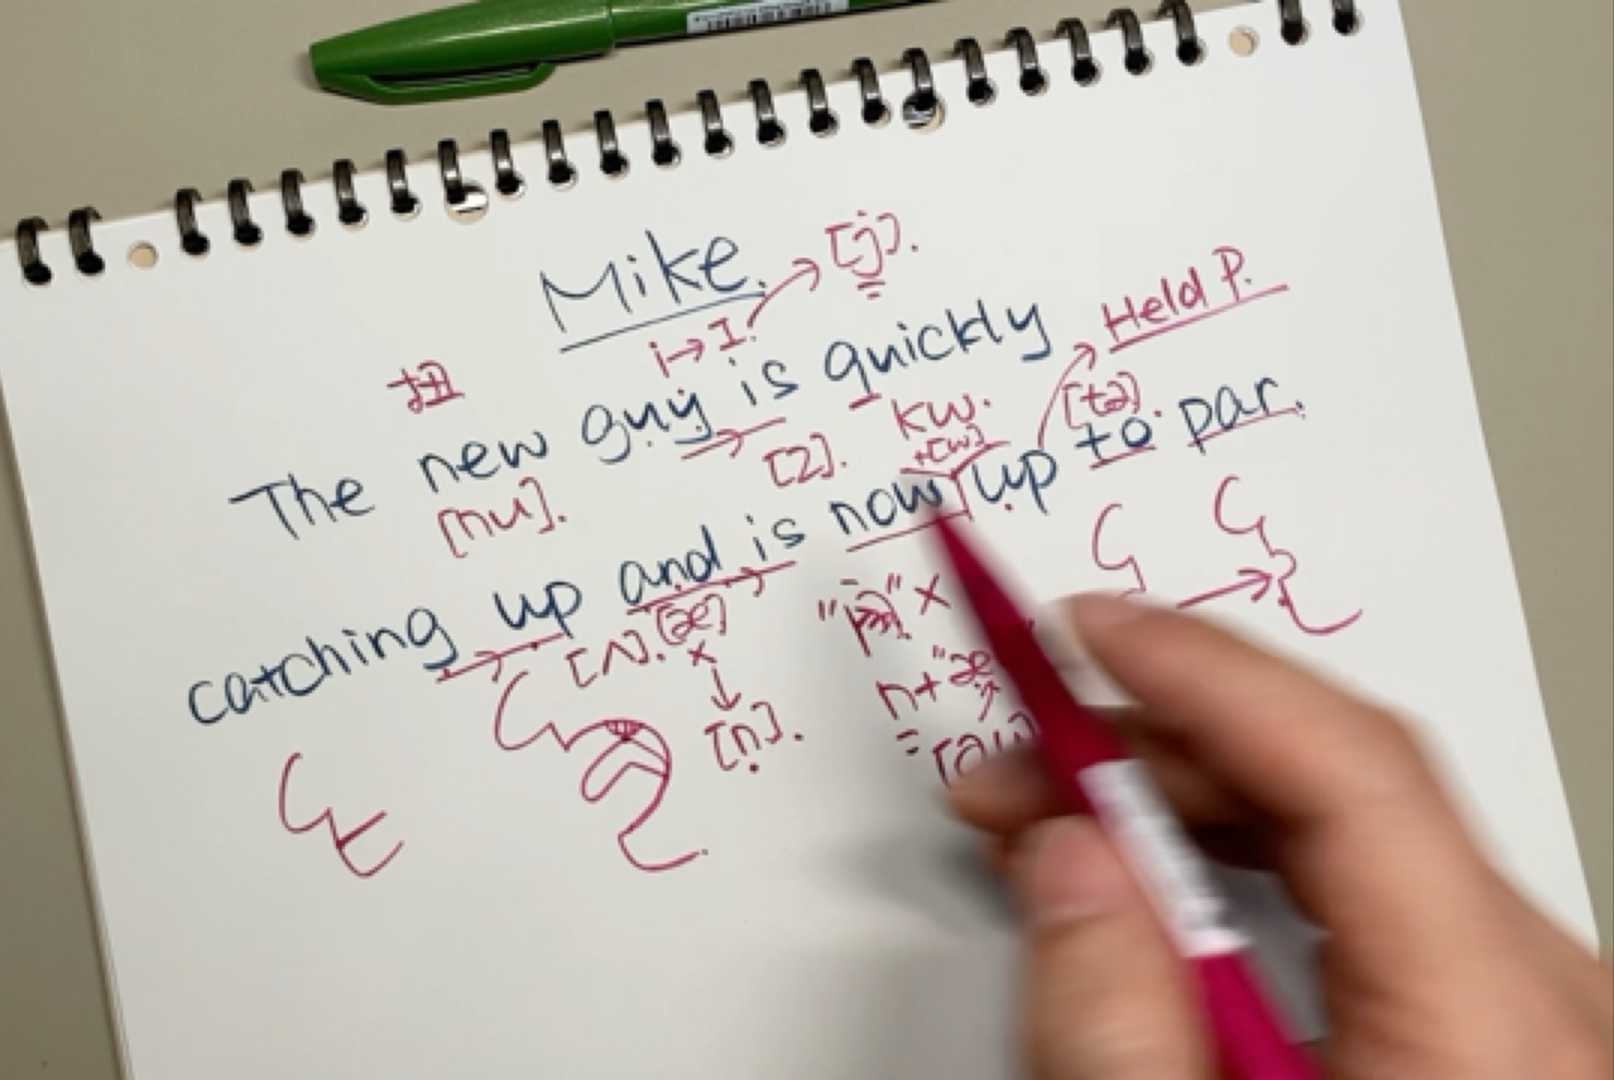 Mike.
i→I. [j].
The new guy is quickly
扭 Held P.
[nu]. [z]. kw. +[w] [tə].
catching up and is now up to par.
[ʌ]. [æ] x
"n+"æ
[n]. =[aʊ]